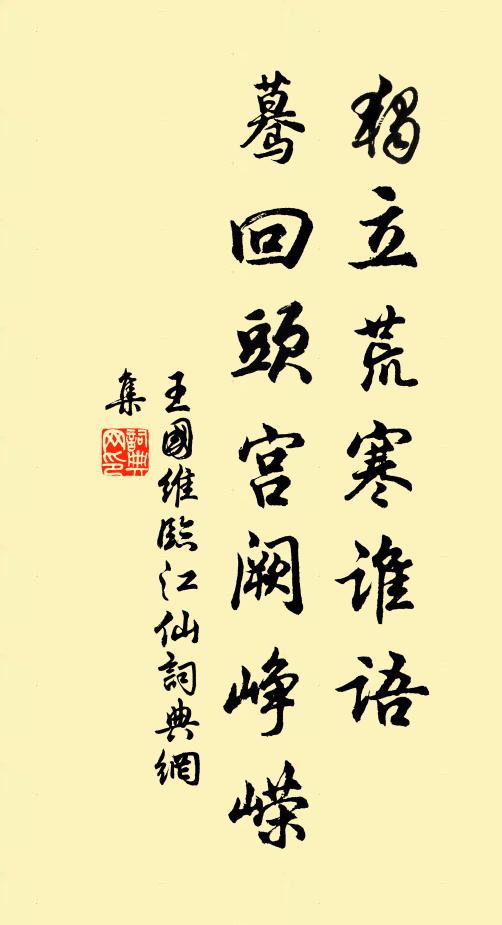 獨立荒寒誰語
驀回頭宫闕峥嵘
王國維臨江仙詞典網
集
詞典网印